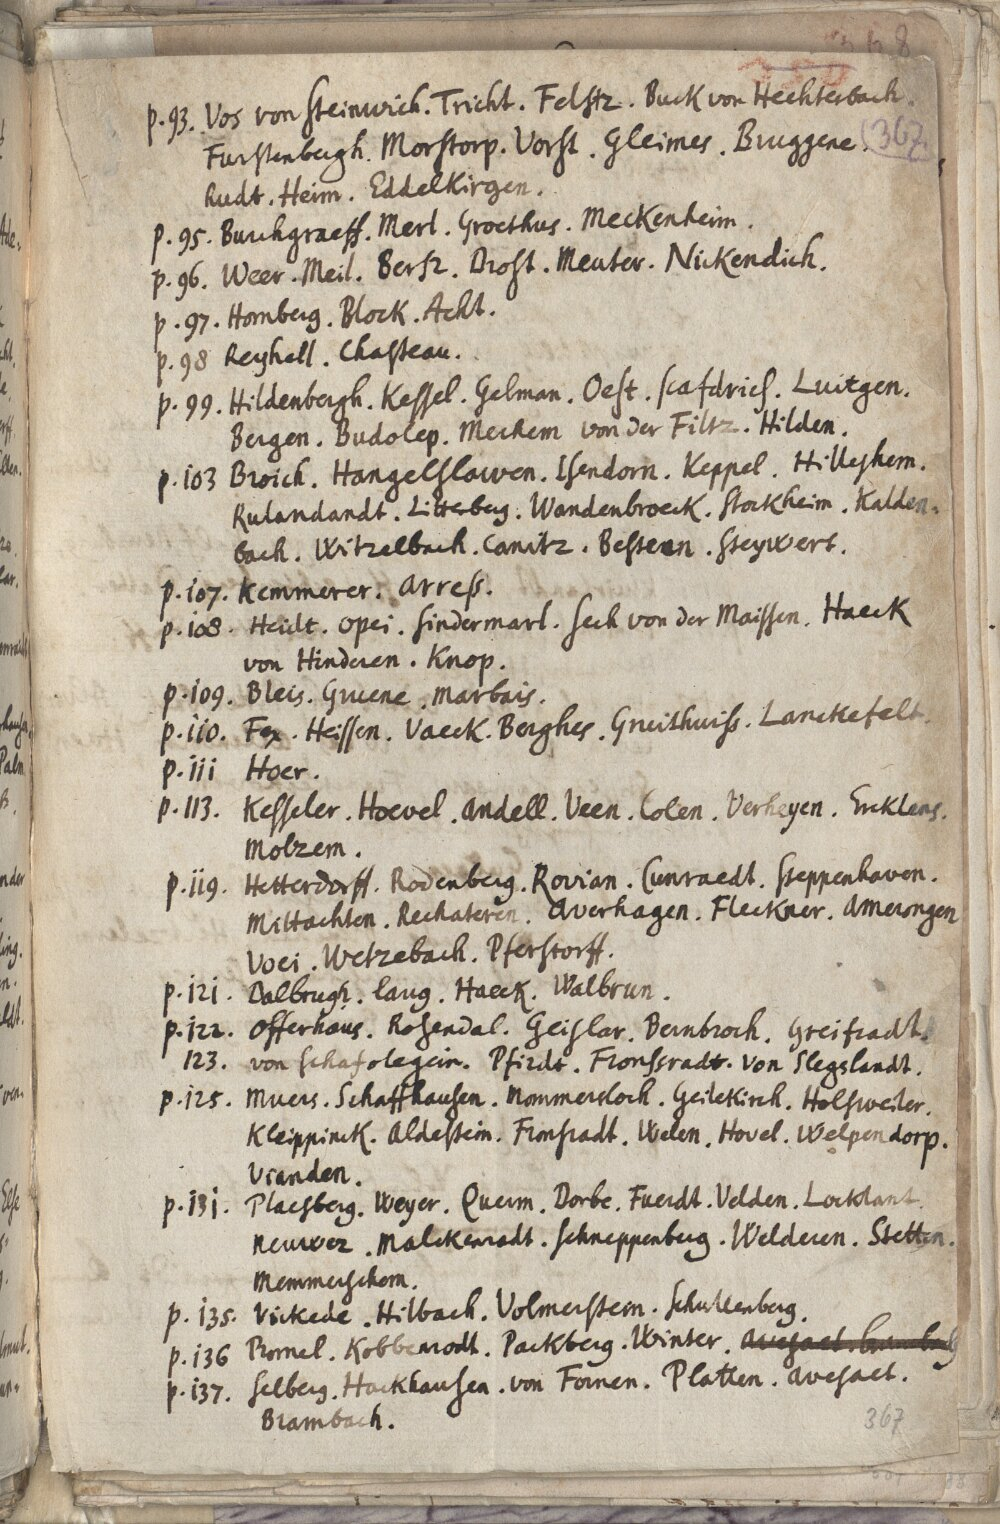 p. 93. Vos von Steinwich. Tricht. Felstz. Buck von Hechterbach.
367
Furstenbergh. Morstorp. Vorst. Gleimes. Bruggene.
Rudt. Heim. Eddelkirgen.
p. 95. Burchgraeff. Merl. Groethus. Meckenheim.
p. 96. Weer. Meil. Bersz. Drost. Meuter. Nickendich.
p. 97. Homberg. Block. Acht.
p. 98 Reyhell. Chasteau.
p. 99. Hildenbergh. Kessel. Gelman. Oest. Scafdries. Luitgen.
Bergen. Budolep. Merhem von der Filtz. Hilden.
p. 103 Broich. Hangelslawen. Isendorn. Keppel. Hilleshem.
Rulandandt. Litterberg. Wandenbroeck. Stockheim. Kalden-
bach. Witzelbach. Canitz. Bestenn. Steywert.
p. 107. Kemmerer. Arress.
p. 108. Heidt. Opei. Sindermarl. Sech von der Maissen. Haeck
von Hinderen. Knop.
p. 109. Bleis. Gruene. Marbais.
p. 110. Fex. Heissen. Vaeck. Berghes. Gruithuiss. Lanckefelt.
p. 111 Hoer.
p. 113. Kesseler. Hoevel. Andell. Veen. Colen. Verheyen. Ercklens.
Molzem.
p. 119. Hetterdorff. Rodenberg. Rovian. Cunraedt. Steppenhaven.
Mittachten. Rechateren. Averhagen. Fleckner. Amerongen
Voei. Wetzebach. Pferstorff.
p. 121. Dalbrugh. Laug. Haeck. Walbrun.
p. 122. Offerhaus. Rosendal. Geislar. Bernbroch. Greifradt.
123. von Schafolegein. Pfirdt. Fronssradt. von Slegslandt.
p. 125. Muers. Schaffhausen. Nommersloch. Geilekirch. Holsweiler.
Kleippinck. Aldestein. Fronsradt. Welen. Hovel. Welpendorp.
Vianden.
p. 131. Plaesberg. Weyer. Querm. Dorbe. Fuerdt. Velden. Locklant.
Neuwer. Malckenrodt. Schneppenberg. Welderen. Stetten.
Memmerschem.
p. 135. Vickede. Hilbach. Volmerstein. Schullenberg.
p. 136 Bromel. Kobbenrodt. Packberg. Winter.
p. 137. Selberg. Hackhausen. von Fornen. Platten. Avesaet.
Brambach.
367